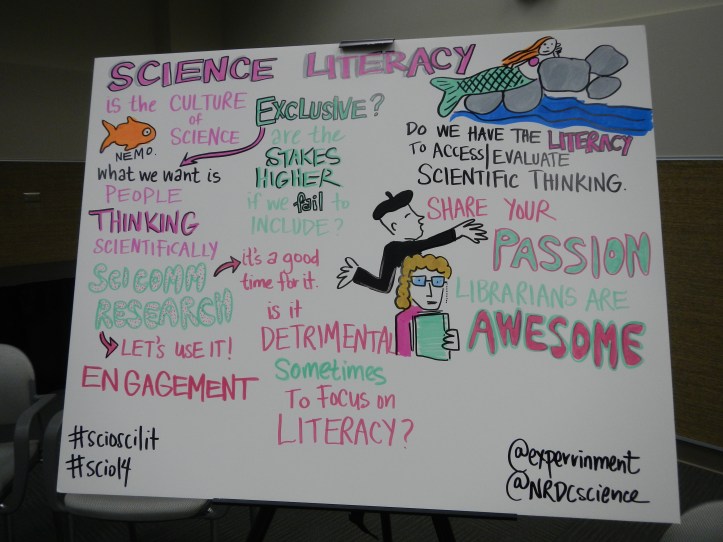 SCIENCE LITERACY
is the CULTURE
of
SCIENCE
EXCLUSIVE?
NEMO.
what we want is
PEOPLE
THINKING
SCIENTIFICALLY
are the
STAKES
HIGHER
if we fail to
INCLUDE?
SCI COMM
RESEARCH
it's a good
time for it.
LET'S USE IT!
ENGAGEMENT
is it
DETRIMENTAL
Sometimes
To Focus on
LITERACY?
DO WE HAVE THE LITERACY
TO ACCESS/EVALUATE
SCIENTIFIC THINKING.
SHARE YOUR
PASSION
LIBRARIANS ARE
AWESOME
#scioscilit
#scio14
@experrinment
@NRDCscience